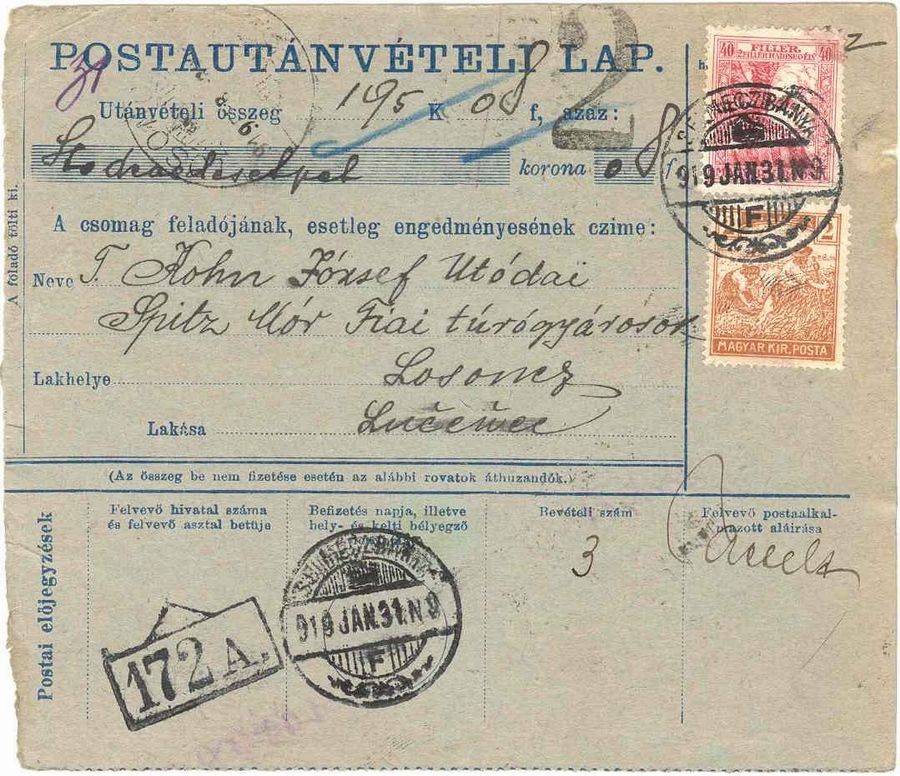 POSTAUTÁNVÉTELI LAP.
2
Utánvételi összeg 195 K 08 f, azaz:
korona 08 f
40 FILLER. 40
2 FILLER HADI SEGÉLY
SELMECZBÁNYA
919 JAN. 31. N 9
F
A csomag feladójának, esetleg engedményesének czime:
A feladó tölti ki.
Neve T. Kohn József Utódai
Spitz Mór Fiai túrógyárosok
MAGYAR KIR. POSTA
Lakhelye Losoncz
Lakása Lučenec
(Az összeg be nem fizetése esetén az alábbi rovatok áthuzandók.)
Postai előjegyzések
Felvevő hivatal száma
és felvevő asztal betüje
Befizetés napja, illetve
hely- és kelti bélyegző
Bevételi szám
Felvevő postaalkal-
mazott aláirása
3
172 A.
SELMECZBÁNYA
919 JAN. 31. N 9
F